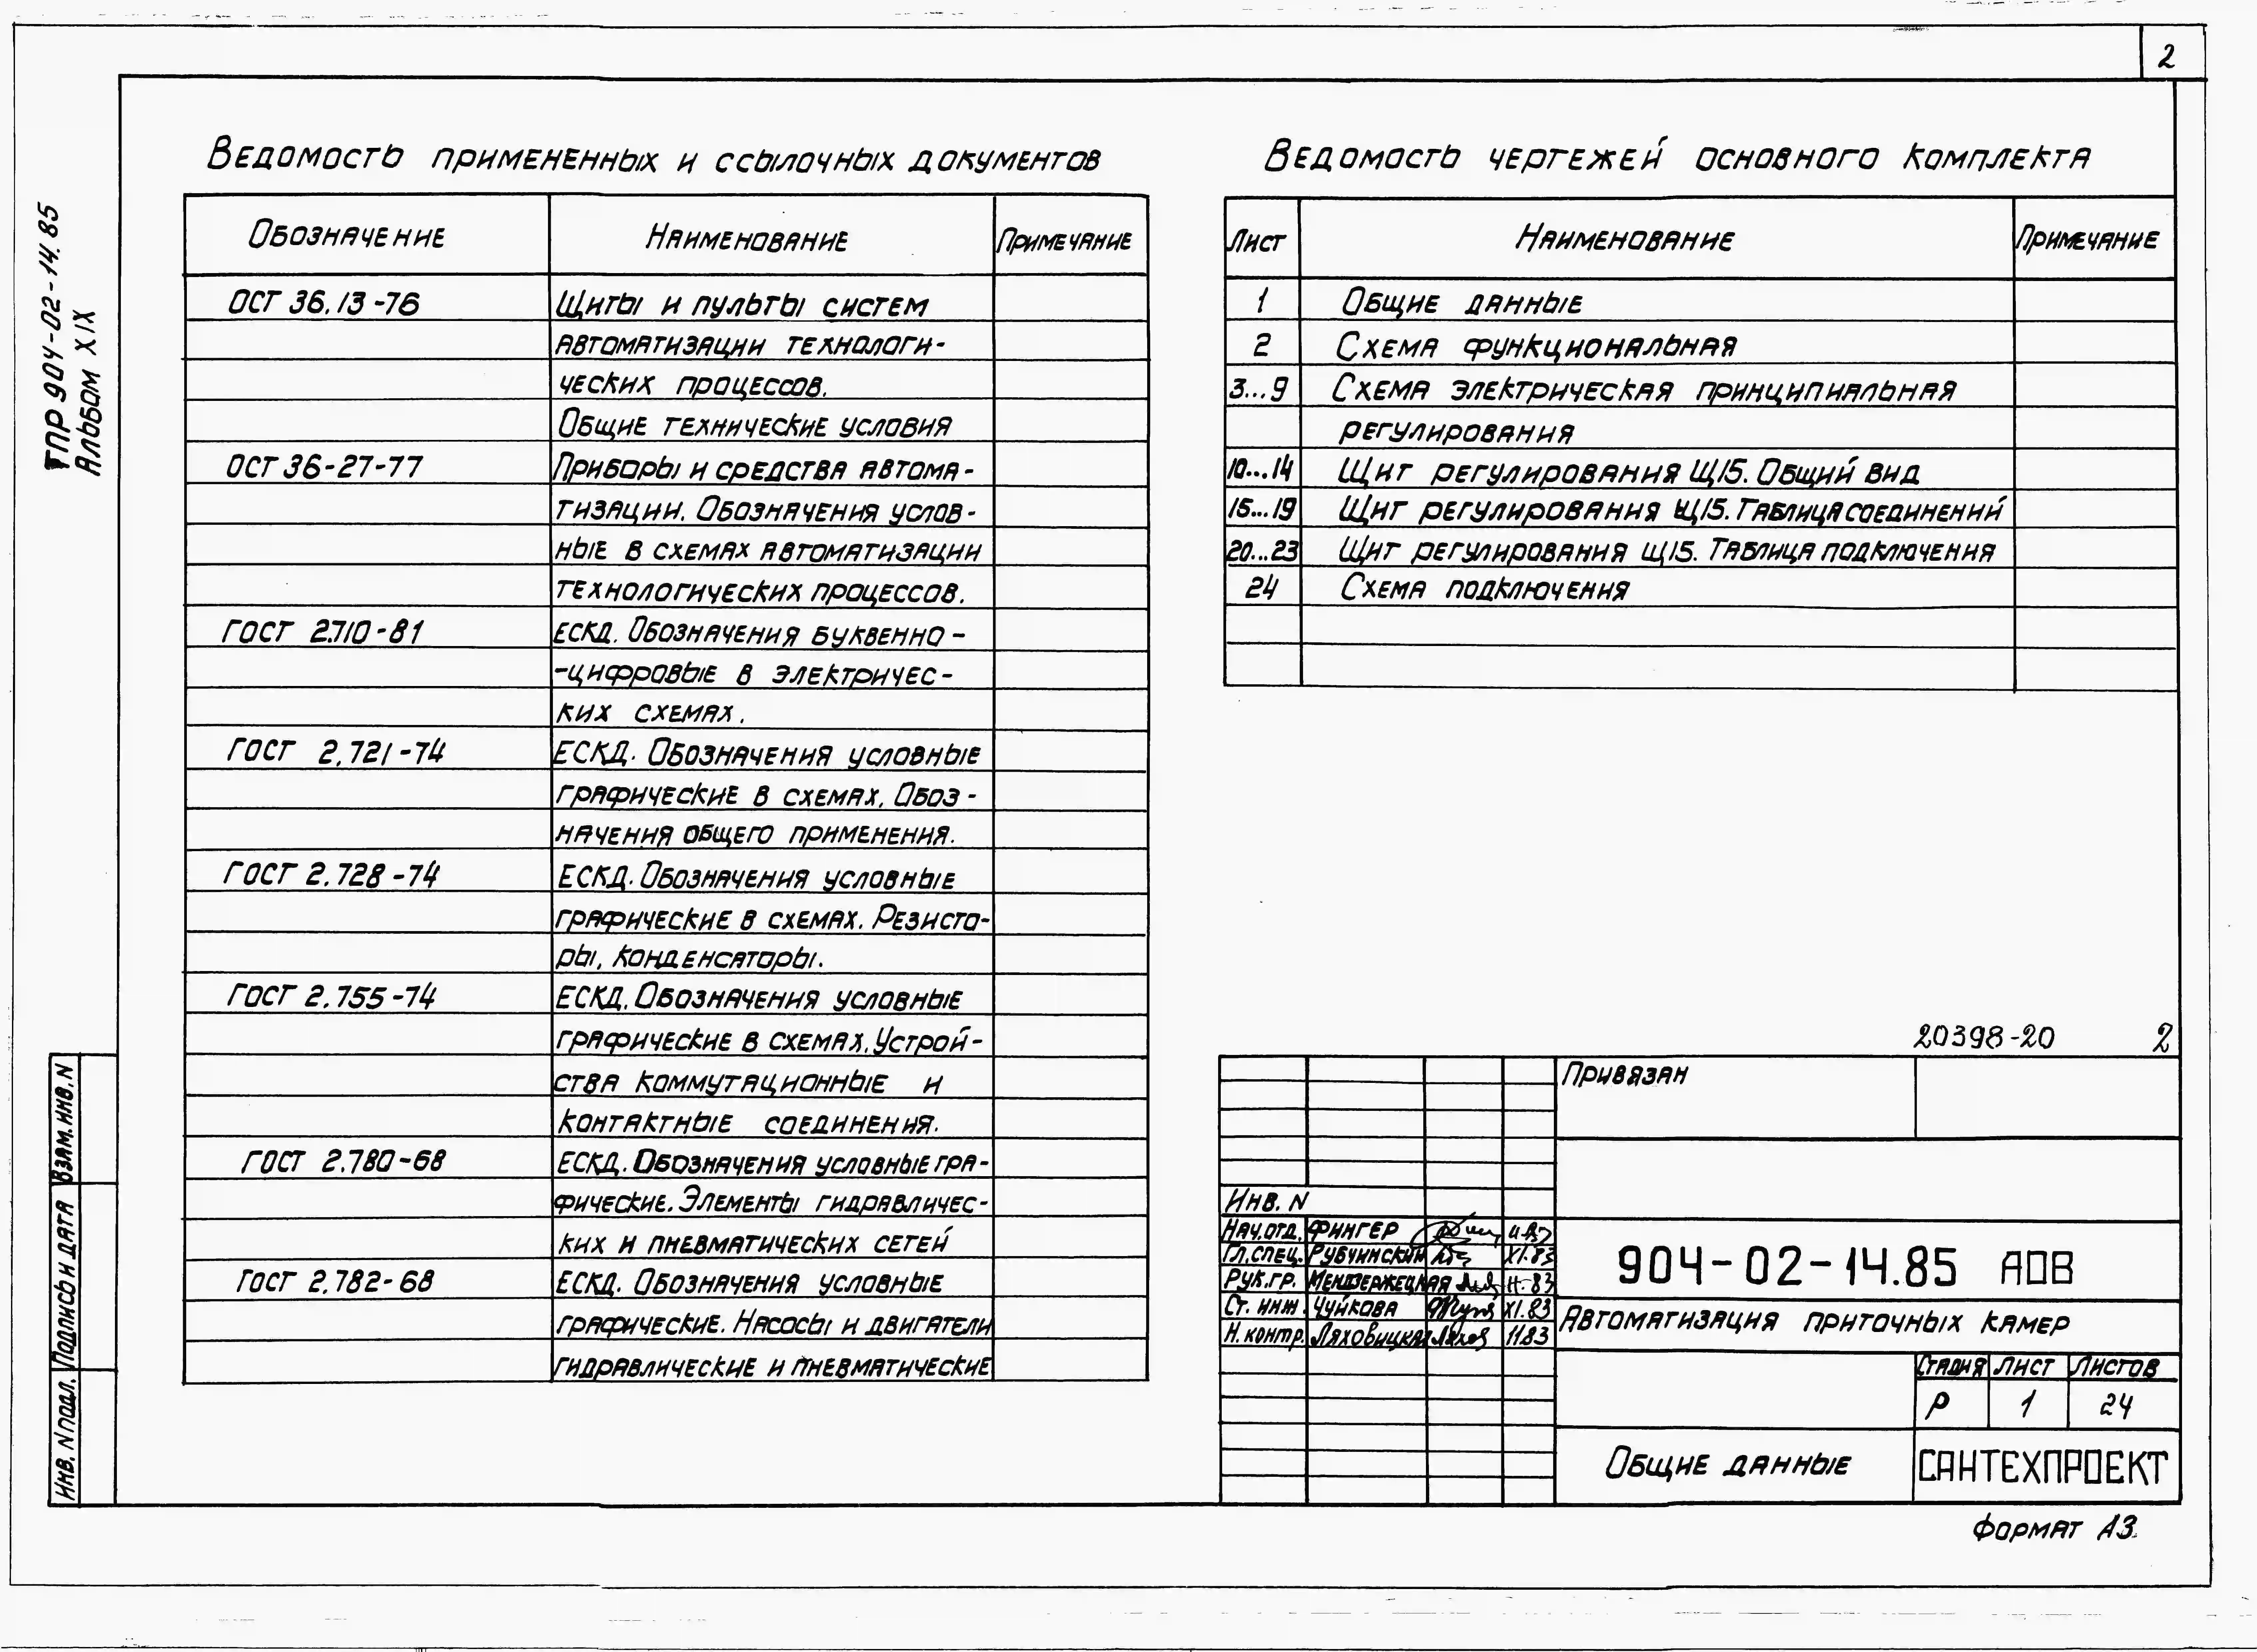 2
ТПР 904-02-14.85
Альбом XIX
Ведомость примененных и ссылочных документов
Обозначение Наименование Примечание
ОСТ 36.13-76 Щиты и пульты систем
автоматизации технологи-
ческих процессов.
Общие технические условия
ОСТ 36-27-77 Приборы и средства автома-
тизации. Обозначения услов-
ные в схемах автоматизации
технологических процессов.
ГОСТ 2.710-81 ЕСКД. Обозначения буквенно-
-цифровые в электричес-
ких схемах.
ГОСТ 2.721-74 ЕСКД. Обозначения условные
графические в схемах. Обоз-
начения общего применения.
ГОСТ 2.728-74 ЕСКД. Обозначения условные
графические в схемах. Резисто-
ры, конденсаторы.
ГОСТ 2.755-74 ЕСКД. Обозначения условные
графические в схемах. Устрой-
ства коммутационные и
контактные соединения.
ГОСТ 2.780-68 ЕСКД. Обозначения условные гра-
фические. Элементы гидравличес-
ких и пневматических сетей
ГОСТ 2.782-68 ЕСКД. Обозначения условные
графические. Насосы и двигатели
гидравлические и пневматические
Ведомость чертежей основного комплекта
Лист Наименование Примечание
1 Общие данные
2 Схема функциональная
3...9 Схема электрическая принципиальная
регулирования
10...14 Щит регулирования Щ15. Общий вид
15...19 Щит регулирования Щ15. Таблица соединений
20...23 Щит регулирования Щ15. Таблица подключения
24 Схема подключения
20398-20 2
Привязан
Инв. N
Нач.отд. Фингер
Гл.спец. Рубчинский XI.83
Рук.гр. Мендзержецкая 11-83
Ст. инж. Чуйкова XI.83
Н.контр. Ляховицкая 11.83
904-02-14.85 АОВ
Автоматизация приточных камер
Стадия Лист Листов
Р 1 24
Общие данные САНТЕХПРОЕКТ
Формат А3
Взам.инв.N
Подпись и дата
Инв. N подл.